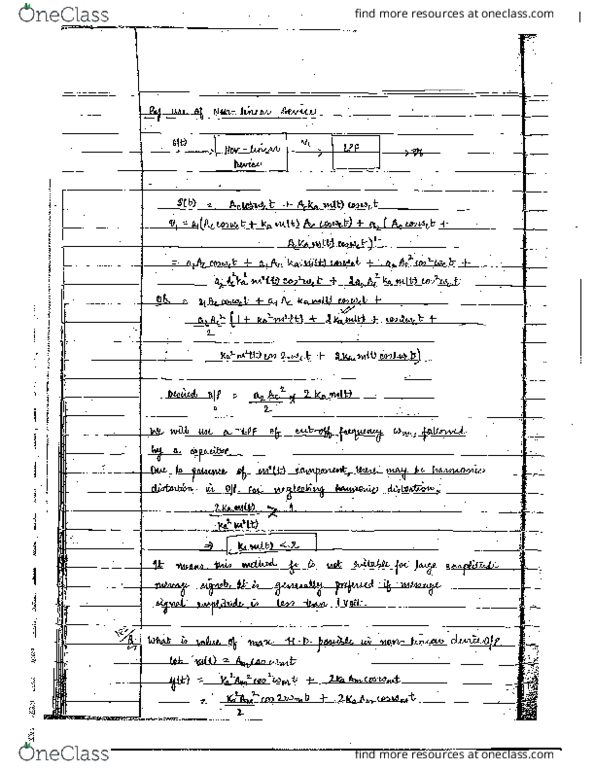 OneClass
find more resources at oneclass.com
By use of Non-linear Device
S(t) Non-linear Device V₁ LPF
S(t) = Ac cosωct + Ac Ka m(t) cosωct
v₁ = a₁(Ac cosωct + Ka m(t) Ac cosωct) + a₂ (Ac cosωct +
Ac Ka m(t) cosωct)²
= a₁Ac cosωct + a₁Ac Ka m(t) cosωct + a₂Ac² cos²ωct +
a₂Ac²Ka² m²(t) cos²ωct + 2a₂Ac² Ka m(t) cos²ωct
a₁Ac cosωct + a₁Ac Ka m(t) cosωct +
a₂Ac²/2 [1 + Ka²m²(t) + 2Ka m(t) + cos2ωct +
Ka²m²(t) cos2ωct + 2Ka m(t) cos2ωct]
Desired O/P = a₂Ac²/2 × 2Ka m(t)
We will use a LPF of cut-off frequency ωm, followed
by a capacitor
Due to presence of m²(t) component, there may be harmonic
distortion in O/P. For neglecting harmonic distortion,
2Ka m(t)/Ka²m²(t) > 1
⇒ Ka m(t) < 2
It means this method is not suitable for large amplitude
message signal. It is generally preferred if message
signal amplitude is less than 1 Volt.
What is value of max. H.D. possible in non-linear device O/P
Let m(t) = Am cosωmt
y(t) = Ka²Am² cos²ωmt + 2Ka Am cosωmt
= Ka²Am²/2 cos2ωmt + 2Ka Am cosωmt
OneClass
find more resources at oneclass.com